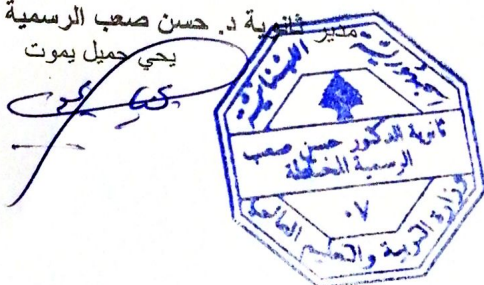 مدير ثانوية د. حسن صعب الرسمية
يحي جميل يموت
الجمهورية اللبنانية
ثانوية الدكتور حسن صعب
الرسمية المختلطة
٠٧
وزارة التربية والتعليم العالي